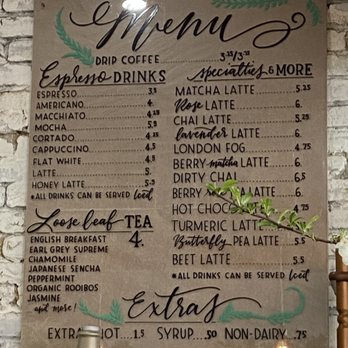 Menu
DRIP COFFEE
Espresso DRINKS
ESPRESSO
AMERICANO 4.
MACCHIATO 4.25
MOCHA 5.5
CORTADO 4.25
CAPPUCCINO 4.5
FLAT WHITE 4.5
LATTE 5.
HONEY LATTE 5.5
*ALL DRINKS CAN BE SERVED Iced
Loose leaf TEA
4.
ENGLISH BREAKFAST
EARL GREY SUPREME
CHAMOMILE
JAPANESE SENCHA
PEPPERMINT
ORGANIC ROOIBOS
JASMINE
and more!
specialties & MORE
MATCHA LATTE 5.25
Rose LATTE 6.
CHAI LATTE 5.25
lavender LATTE 6.
LONDON FOG 4.75
BERRY matcha LATTE 6.
DIRTY CHAI 6.
BERRY LATTE 6.
HOT CHOCO
TURMERIC LATTE
Butterfly PEA LATTE 5.5
BEET LATTE 5.5
*ALL DRINKS CAN BE SERVED Iced
Extras
EXTRA SHOT 1.5 SYRUP .50 NON-DAIRY .75